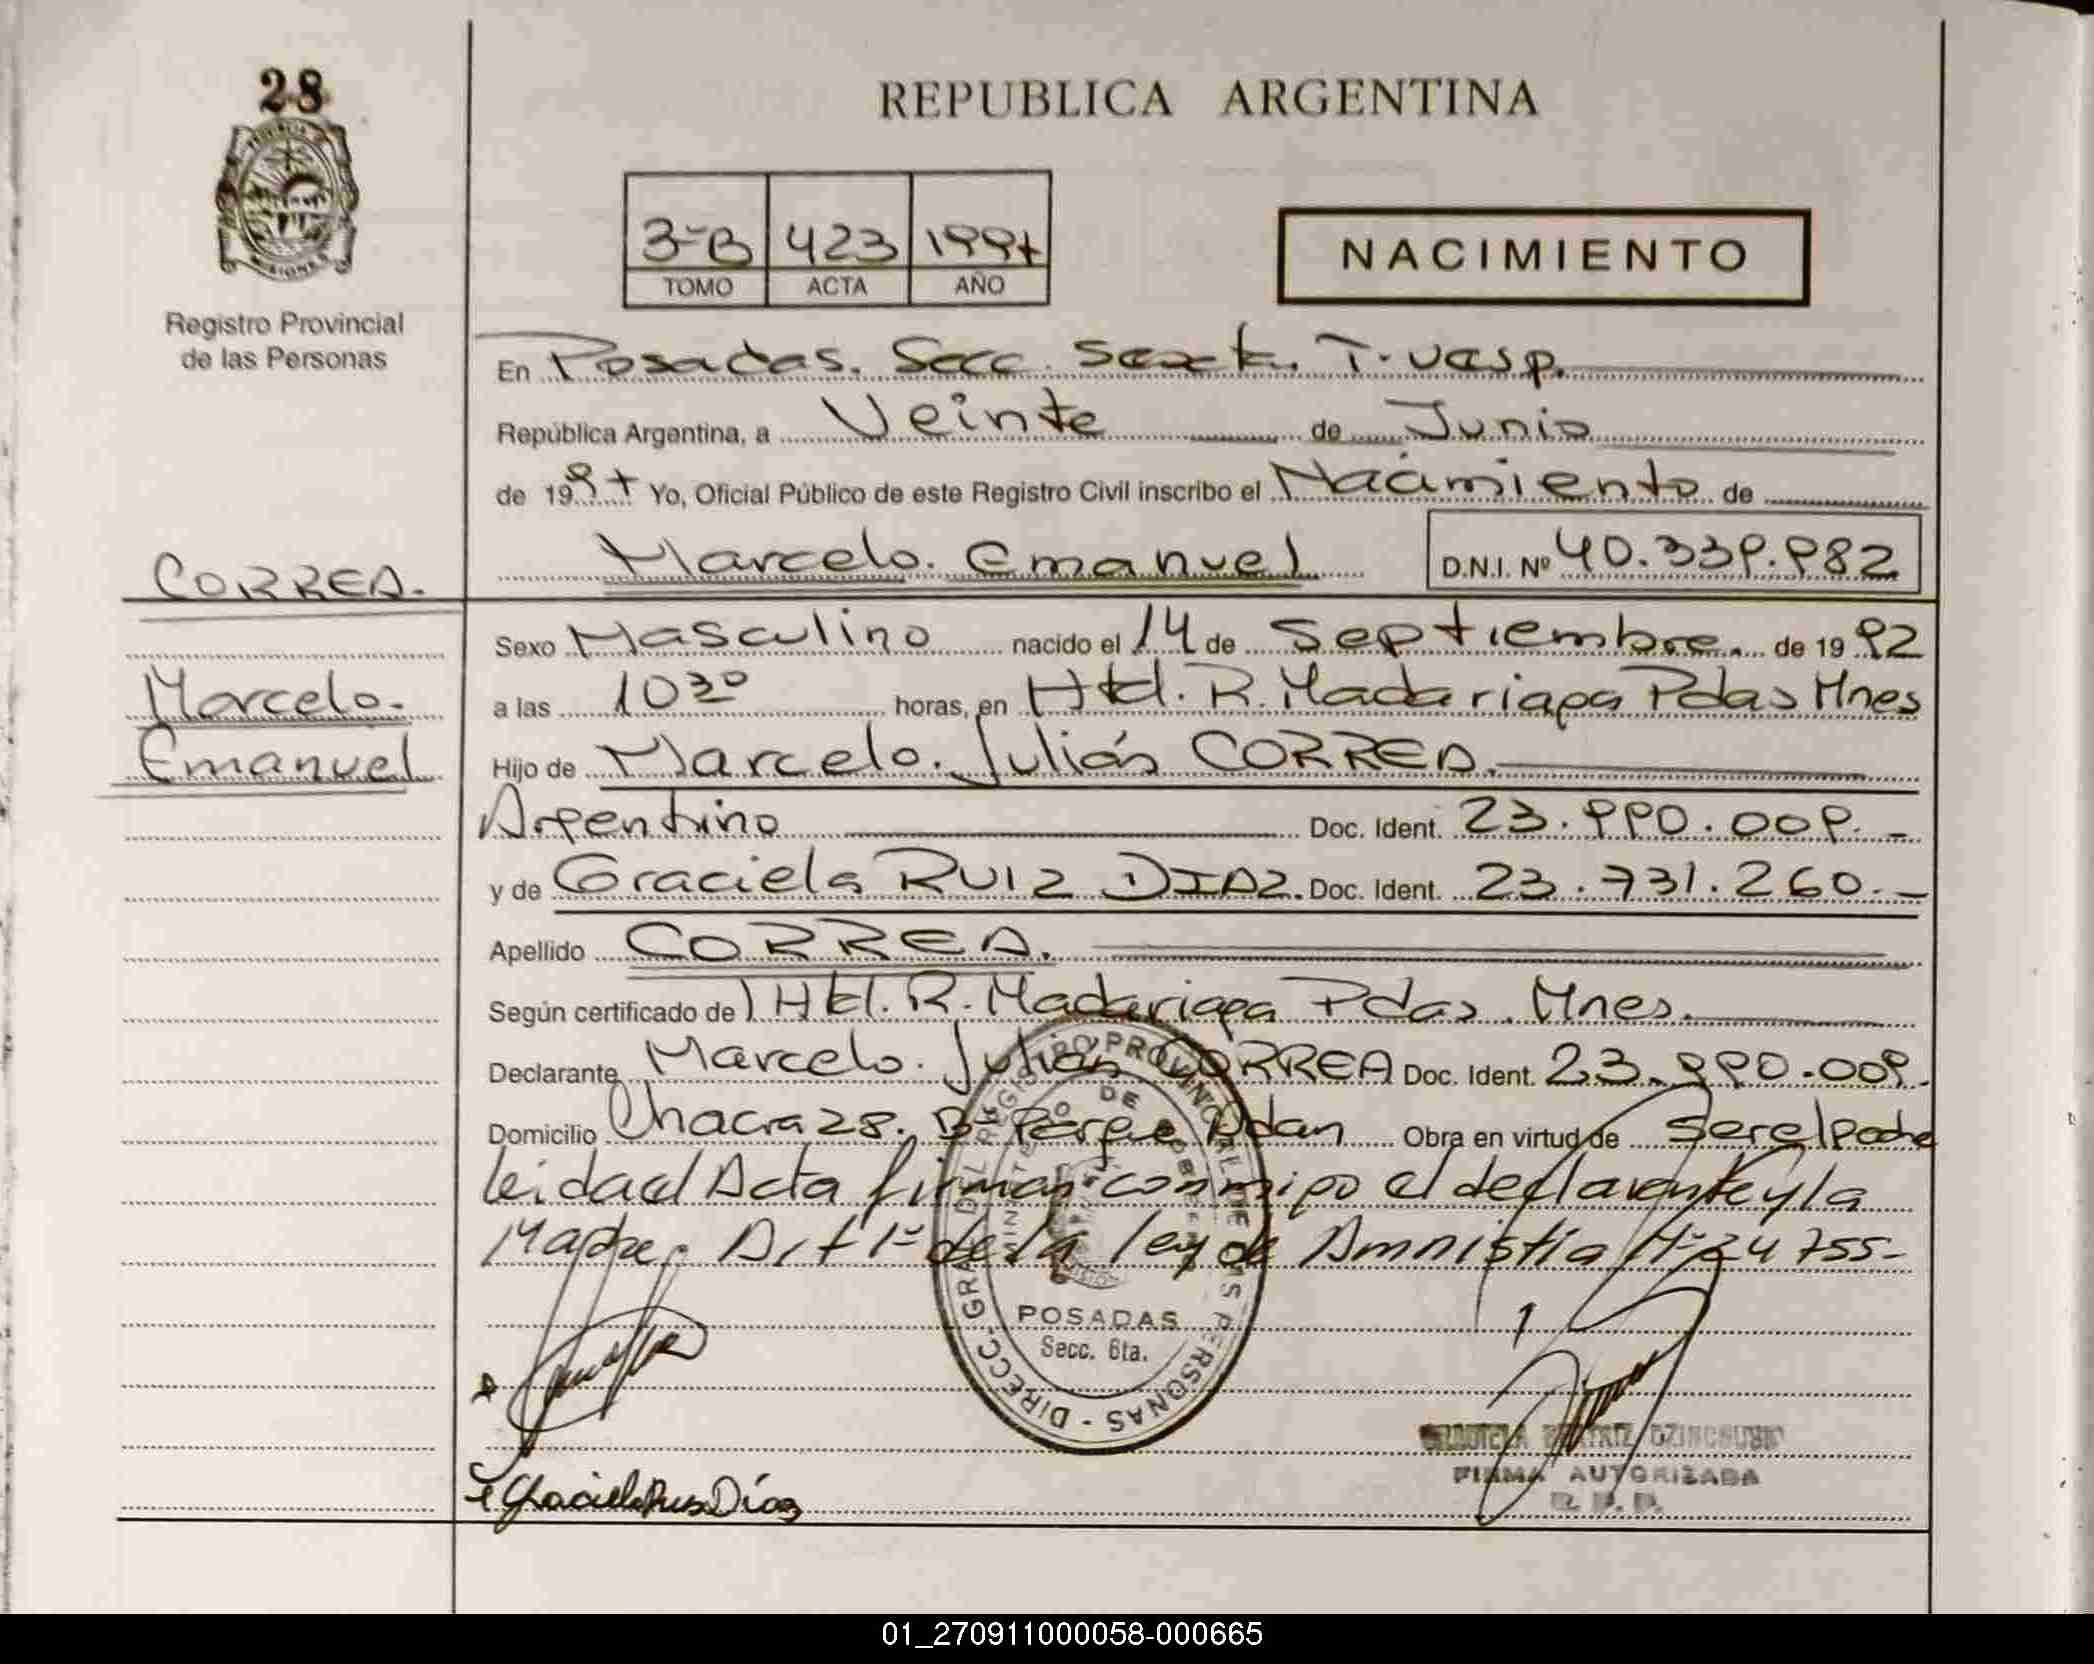 28
REPUBLICA ARGENTINA
3-B 423 1997
TOMO ACTA AÑO
NACIMIENTO
Registro Provincial
de las Personas
En Posadas. Secc. Sexta. T. Vesp.
República Argentina, a Veinte de Junio
de 1997 Yo, Oficial Público de este Registro Civil inscribo el Nacimiento de
Marcelo. Emanuel D.N.I. Nº 40.339.982
CORREA.
Marcelo.
Emanuel
Sexo Masculino nacido el 14 de Septiembre. de 1992
a las 10 30 horas, en Htal. R. Madariaga Pdas Mnes
Hijo de Marcelo. Julián CORREA.
Argentino Doc. Ident. 23.990.009.-
y de Graciela RUIZ DIAZ. Doc. Ident. 23.731.260.-
Apellido CORREA.
Según certificado de Htal. R. Madariaga Pdas. Mnes.
Declarante Marcelo. Julián CORREA Doc. Ident. 23.990.009.
Domicilio Chacra 28. Bº Parque Adan Obra en virtud de Ser el padre
leida el Acta firman conmigo el declarante y la
Madre. Art 1º de la ley de Amnistia Nº 24755-
DIRECC. GRAL. DEL REGISTRO PROVINCIAL DE LAS PERSONAS
MINISTERIO DE GOBIERNO
POSADAS
Secc. 6ta.
Graciela Ruiz Díaz
GRACIELA BEATRIZ
FIRMA AUTORIZADA
R. P. P.
01_270911000058-000665